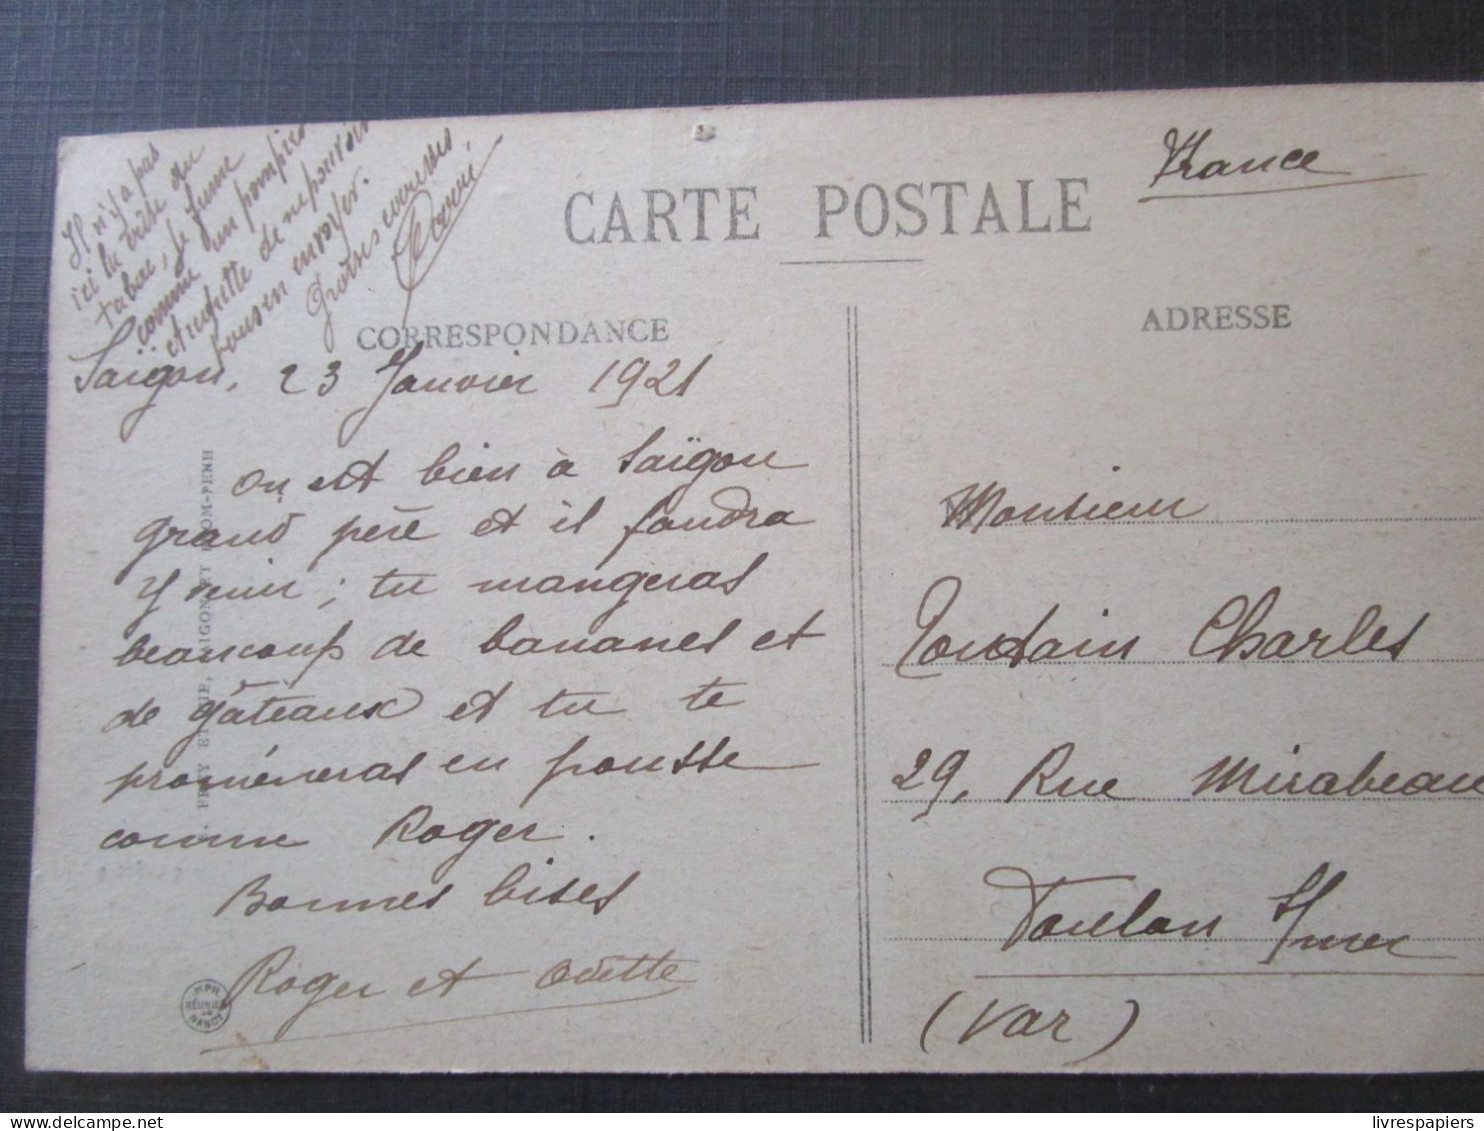 Il n'y a pas
ici la crise du
tabac, je fume
comme un pompier
et m'embête de ne pouvoir
vous en envoyer.
Grosses caresses
CARTE POSTALE
France
CORRESPONDANCE
ADRESSE
Saïgon, 23 Janvier 1921
On est bien à Saïgon
grand père et il faudra
y venir; tu mangeras
beaucoup de bananes et
de gâteaux et tu te
promèneras en pousse
comme Roger.
Bonnes bises
Roger et Odette
Monsieur
Toutain Charles
29, Rue Mirabeau
Toulon s/mer
(Var)
IMPR
RÉUNIES
DE
NANCY
livrespapiers
delcampe.net